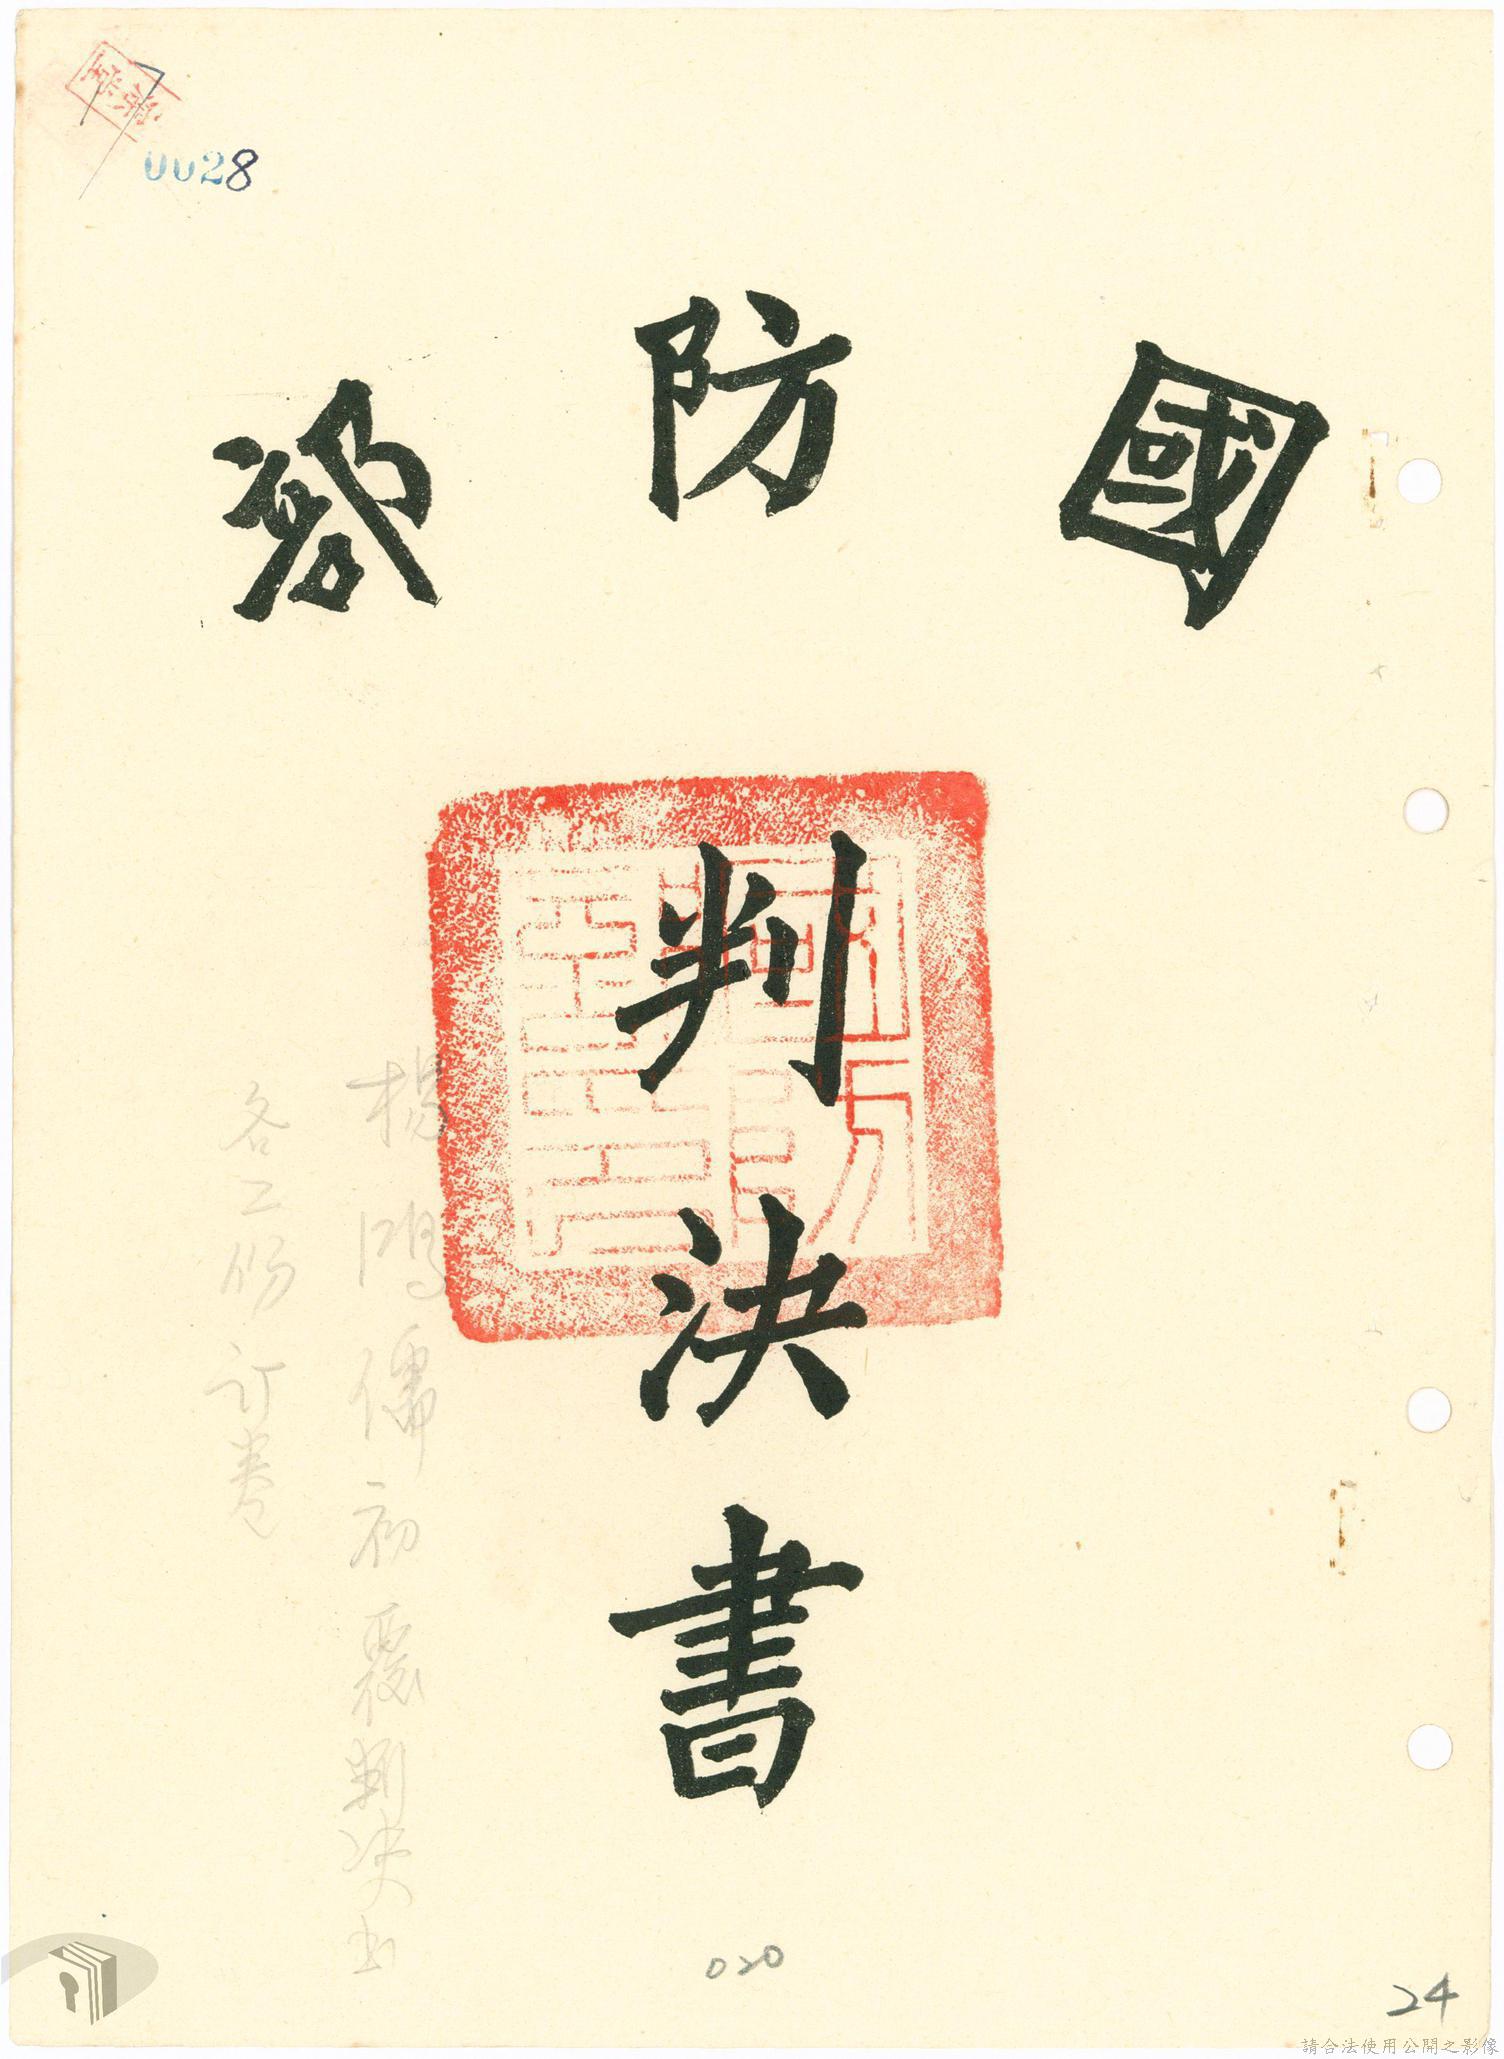 0028
國防部
判決書
楊鴻儒初覆判決书
各二份訂卷
020
24
請合法使用公開之影像